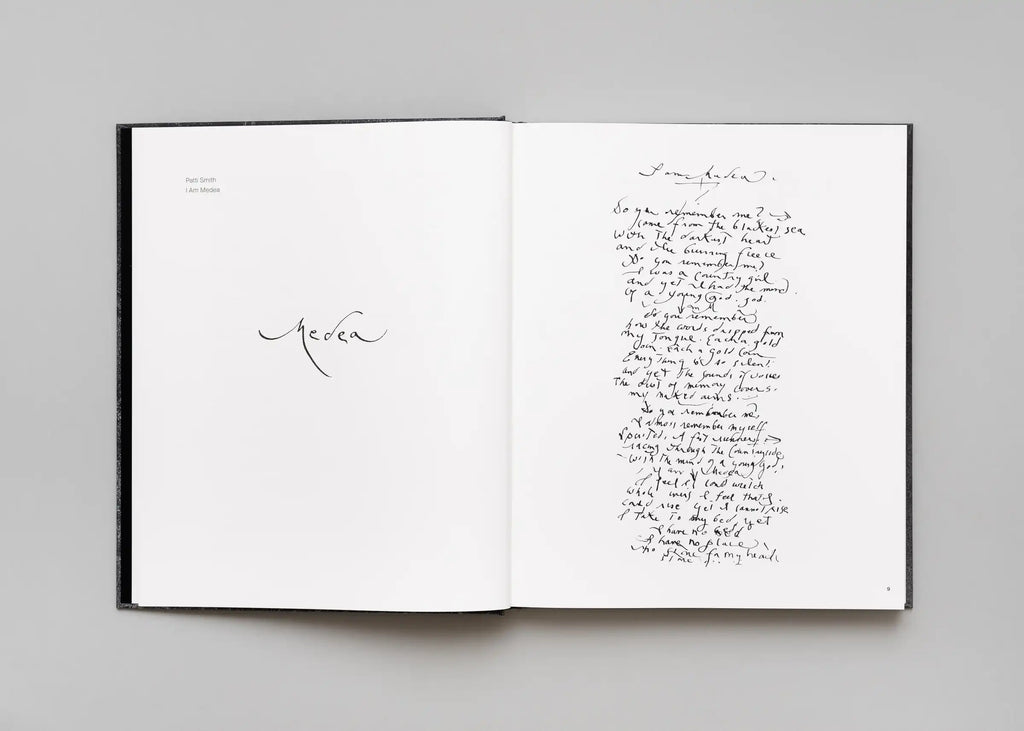 Patti Smith
I Am Medea
Medea
I am Medea.
Do you remember me?
come from the blackest sea
with the darkest heart
and the burning fleece
Do you remember me?
I was a country girl
and yet I had the mind
of a young god. god.
do you remember
how the words dripped from
my tongue. Each a gold
coin. Each a gold coin
Everything is so silent.
and yet the sounds of voices
The dust of memory covers
my naked arms.
Do you remember me,
I almost remember myself
Spirited, a fast runner
racing through the countryside
with the mind of a young god,
I am Medea
I feel I could
whole I feel that I
could rise yet I cannot rise
I take to my bed, yet
I have no bed
I have no place
no stone for my head
9